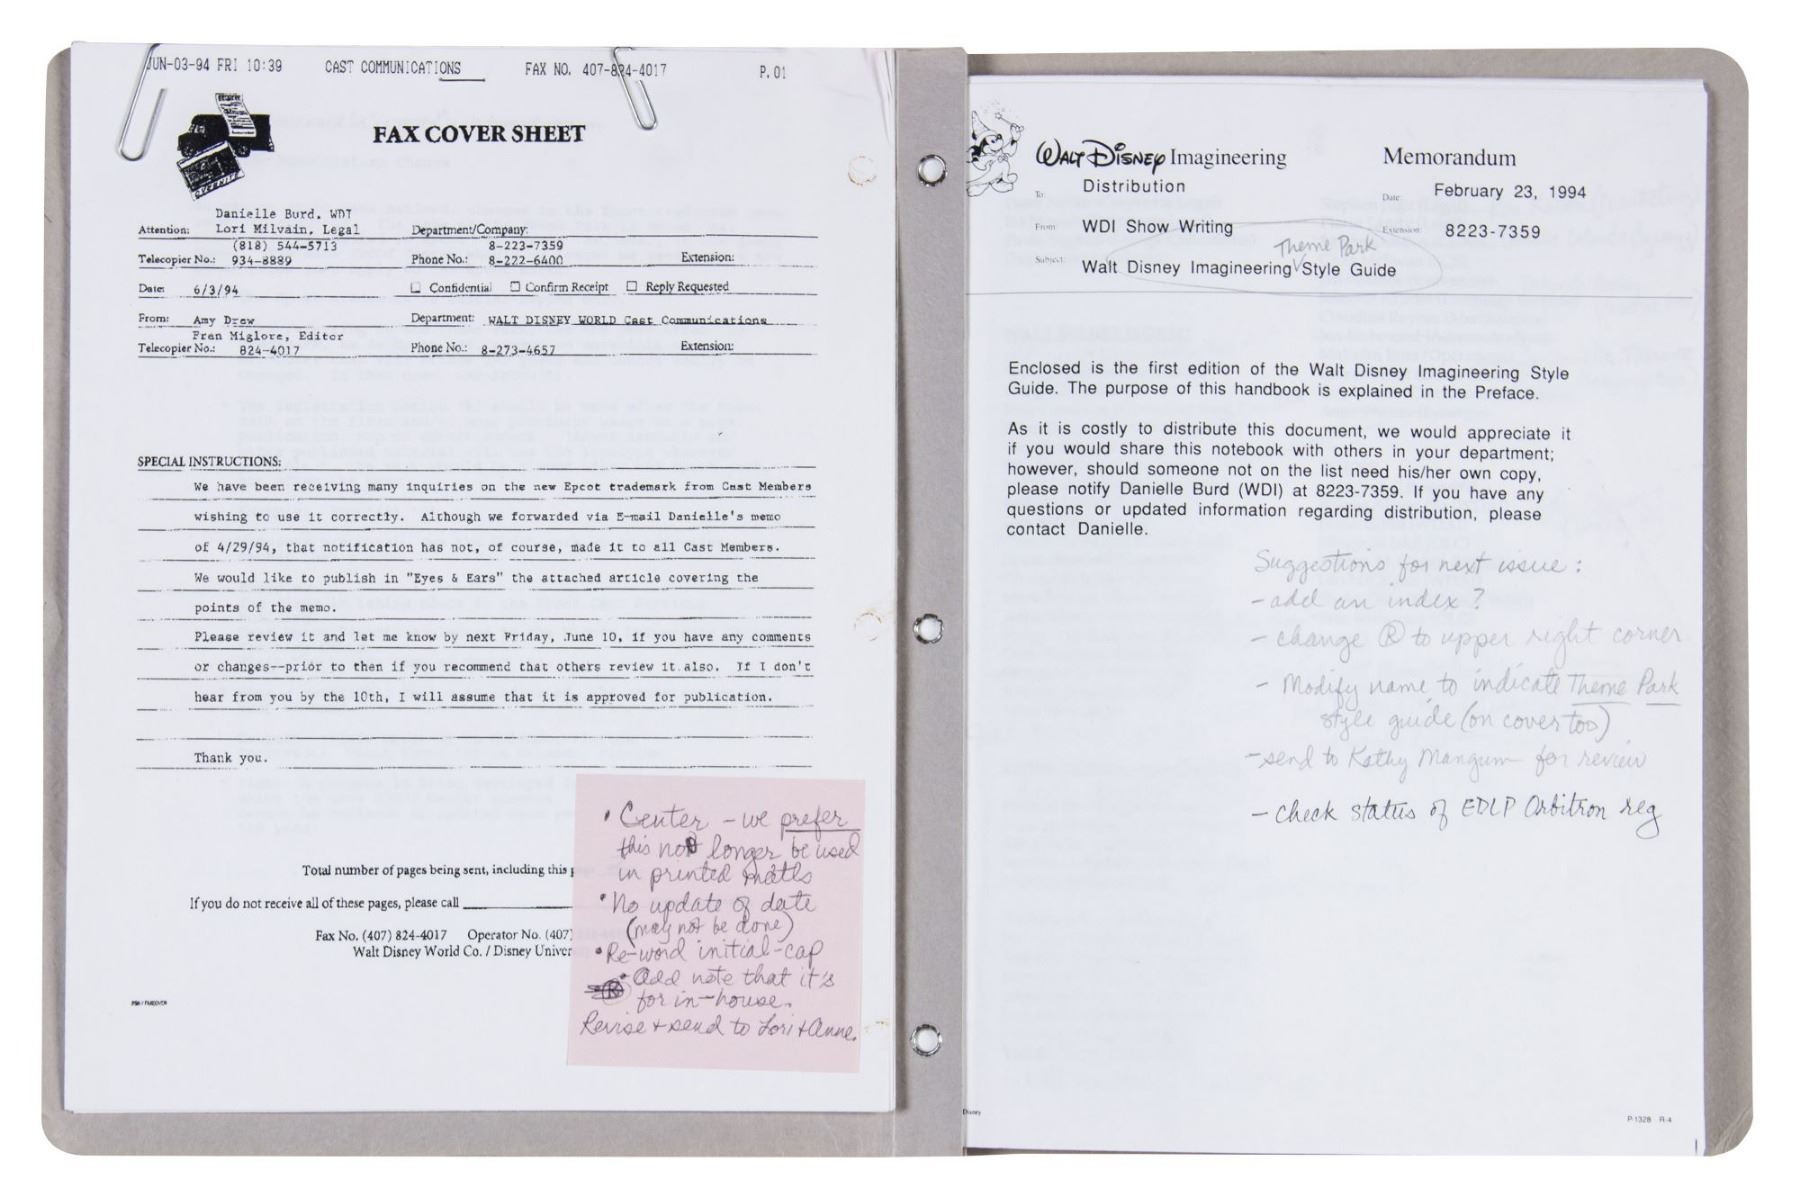 JUN-03-94 FRI 10:39 CAST COMMUNICATIONS FAX NO. 407-824-4017 P.01
FAX COVER SHEET
Danielle Burd, WDI
Attention: Lori Milvain, Legal Department/Company:
(818) 544-5713 8-223-7359
Telecopier No.: 934-8889 Phone No.: 8-222-6400 Extension:
Date: 6/3/94 Confidential Confirm Receipt Reply Requested
From: Amy Drew Department: WALT DISNEY WORLD Cast Communications
Fran Miglore, Editor
Telecopier No.: 824-4017 Phone No.: 8-273-4657 Extension:
SPECIAL INSTRUCTIONS:
We have been receiving many inquiries on the new Epcot trademark from Cast Members
wishing to use it correctly. Although we forwarded via E-mail Danielle's memo
of 4/29/94, that notification has not, of course, made it to all Cast Members.
We would like to publish in "Eyes & Ears" the attached article covering the
points of the memo.
Please review it and let me know by next Friday, June 10, if you have any comments
or changes--prior to then if you recommend that others review it also. If I don't
hear from you by the 10th, I will assume that it is approved for publication.
Thank you.
Total number of pages being sent, including this
If you do not receive all of these pages, please call
Fax No. (407) 824-4017 Operator No. (407)
Walt Disney World Co. / Disney Univer
• Center - we prefer
this no longer be used
in printed matls
• No update of date
(may not be done)
• Re-word initial-cap
• Add note that it's
for in-house.
Revise + send to Lori + Anne.
Walt Disney Imagineering Memorandum
To: Distribution Date: February 23, 1994
From: WDI Show Writing Extension: 8223-7359
Theme Park
Subject: Walt Disney Imagineering Style Guide
Enclosed is the first edition of the Walt Disney Imagineering Style
Guide. The purpose of this handbook is explained in the Preface.
As it is costly to distribute this document, we would appreciate it
if you would share this notebook with others in your department;
however, should someone not on the list need his/her own copy,
please notify Danielle Burd (WDI) at 8223-7359. If you have any
questions or updated information regarding distribution, please
contact Danielle.
Suggestions for next issue:
- add an index?
- change ® to upper right corner
- Modify name to indicate Theme Park
style guide (on cover too)
- send to Kathy Mangum for review
- check status of EDLP Orbitron reg
Disney
P-1328 R-4